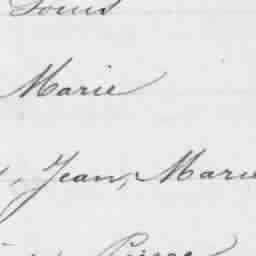 Louis
Marie
Jean, Marie
Pierre